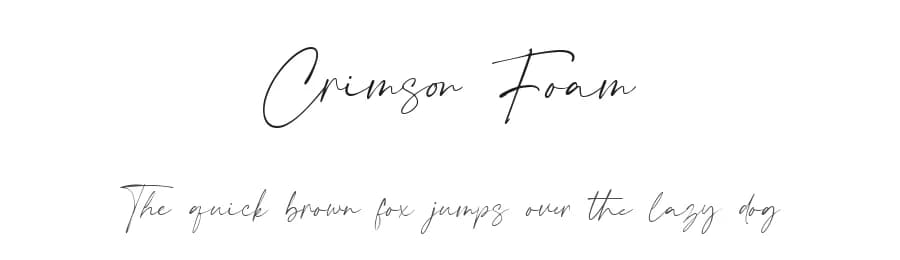 Crimson Foam
The quick brown fox jumps over the lazy dog